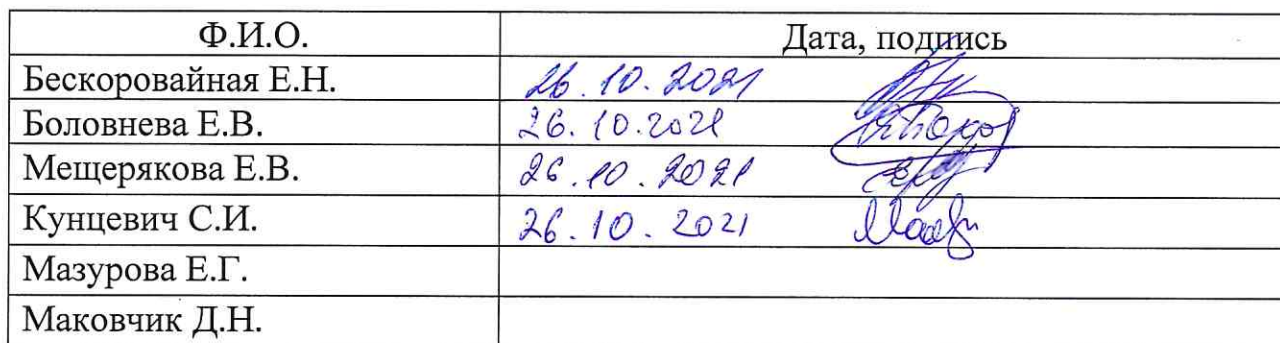 Ф.И.О. Дата, подпись
Бескоровайная Е.Н. 26.10.2021
Боловнева Е.В. 26.10.2021
Мещерякова Е.В. 26.10.2021
Кунцевич С.И. 26.10.2021
Мазурова Е.Г.
Маковчик Д.Н.